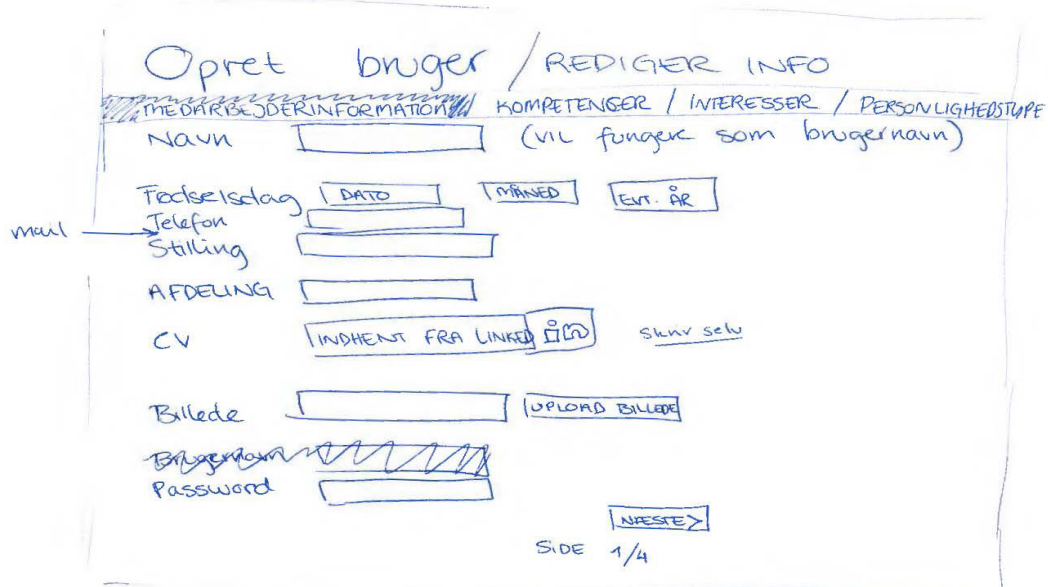 Opret bruger / REDIGER INFO
MEDARBEJDERINFORMATION / KOMPETENCER / INTERESSER / PERSONLIGHEDSTYPE
Navn (vil fungere som brugernavn)
Fødselsdag DATO MÅNED EVT. ÅR
Telefon
mail
Stilling
AFDELING
CV INDHENT FRA LINKED in skriv selv
Billede UPLOAD BILLEDE
Brugernavn
Password
NÆSTE >
SIDE 1/4